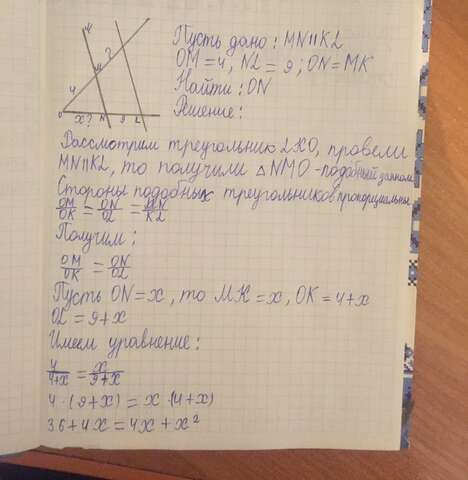 Пусть дано: MN∥KL
OM=4, NL=9; ON=MK
Найти: ON
Решение:
4
?
O
x?
N
9
L
Рассмотрим треугольник LKO, провели
MN∥KL, то получили △NMO-подобный данном
Стороны подобных треугольников пропорциональны
OM/OK = ON/OL = MN/KL
Получим:
OM/OK = ON/OL
Пусть ON=x, то MK=x, OK=4+x
OL=9+x
Имеем уравнение:
4/4+x = x/9+x
4·(9+x)=x·(4+x)
36+4x=4x+x²